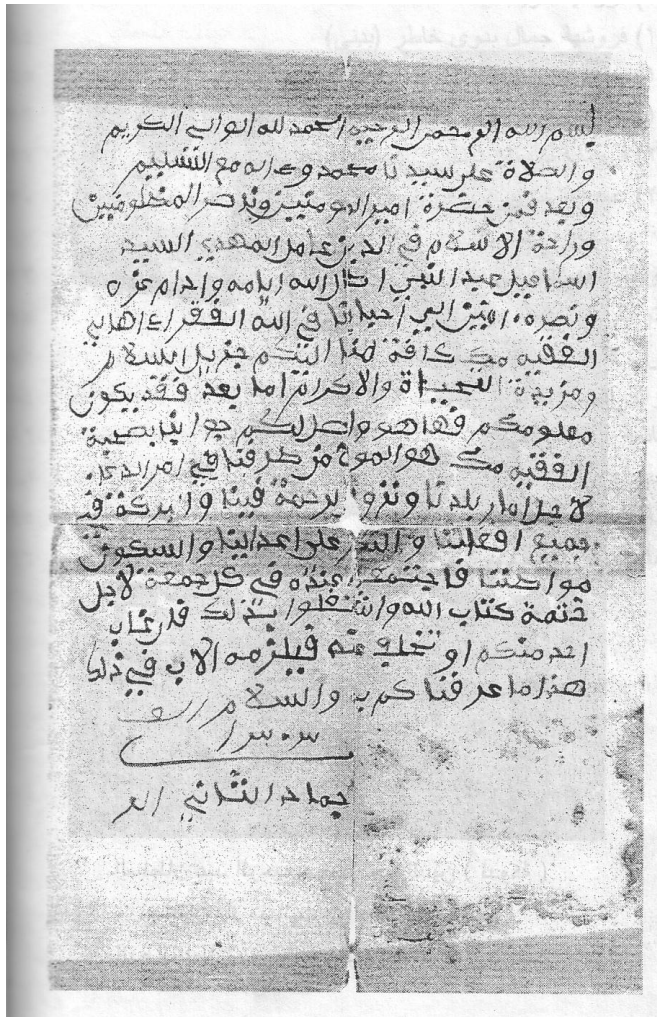 بسم الله الرحمن الرحيم الحمد لله الوالي الكريم
والصلاة على سيدنا محمد وءاله مع التسليم
وبعد فمن حضرة امير المومنين وناصر المظلومين
وراحة الاسلام في الدين عامل المهدي السيد
اسماعيل عبد النبي ادار الله ايامه وادام عزه
ونصره امين الي احبابنا في الله الفقراء اهالي
الفقيه كافة منا اليكم جزيل السلام
ومزيدة التحياة والاكرام اما بعد فقد يكون
معلومكم فها هو واصل لكم جوابنا بصحبة
الفقيه هو المو من طرفنا في امر الدعا
لاجل امار بلدنا ونزول الرحمة فينا والبركة في
جميع افعلنا والنصر على اعداينا والسكون
مواطننا فاجتمعو عنده في كل جمعة لاجل
ختمة كتاب الله واشتغلوا بذلك فان غاب
احد منكم او تخلف عنه فيلزمه الادب في ذلك
هذا ما عرفناكم به والسلام
جماد الثاني